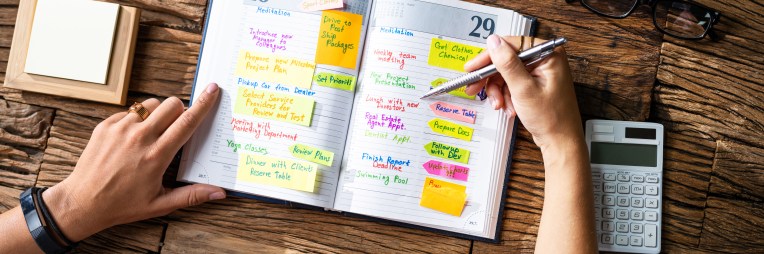 Meditation
Introduce new
Manager to
Colleagues
Drive to
Post
Ship
Packages
Prepare Minimum
Project Plan
Pickup Car from Dealer
Set Priority
Select Service
Providers for
Review and Test
Meeting with
Marketing Department
Yoga Classes
Review Plans
Dinner with Clients
Reserve Table
29
Meditation
Weekly team
meeting
Get Clothes
New Project
Presentation
Lunch with new
Investors
Reserve Table
Real Estate
Agent Appt.
Prepare
Docs
Dentist Appt.
Followup
with Dev
Finish Report
Deadline
Swimming Pool
Plan